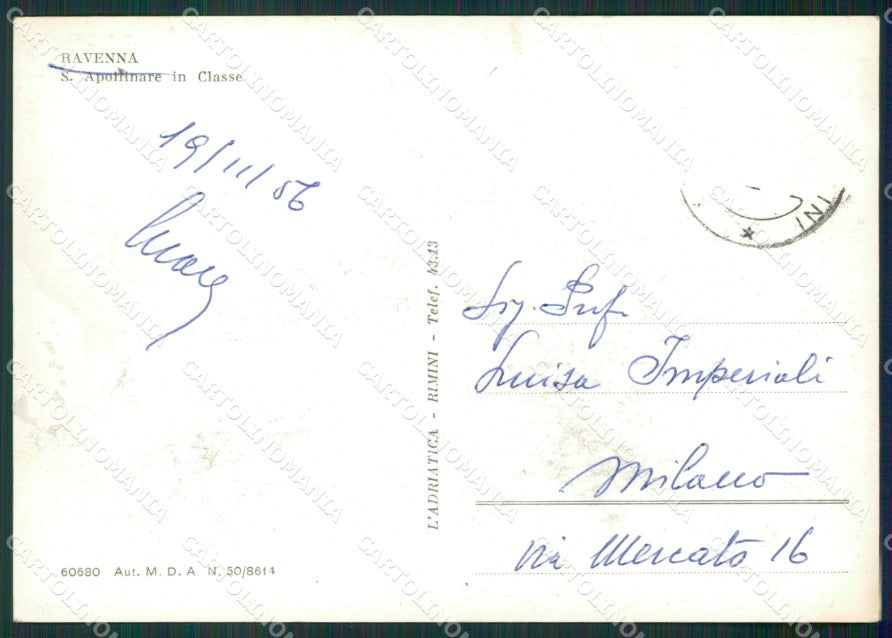 RAVENNA
S. Apollinare in Classe
19/11/56
60680 Aut. M. D. A. N. 50/8614
L'ADRIATICA - RIMINI - Telef. 43.13
INI
Sig. Prof.
Luisa Imperiali
Milano
Via Mercato 16
CARTOLINOMANIA